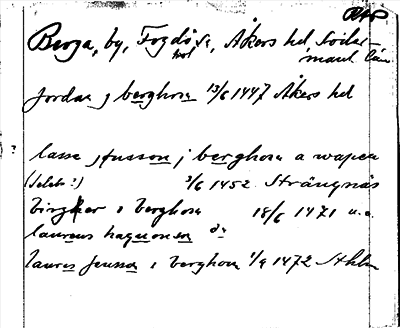 RAP
Berga, by, Fogdö sn, Åkers hd, Söder-
manl. län
jordan j berghom 13/6 1447 Åkers hd
?
lasse jønsson j berghom a wapen
(Seleb?) 3/6 1452 Strängnäs
birger i berghom 18/6 1471 u.a.
laurens haquonson do
laures jensson i berghom 1/9 1472 Sthlm